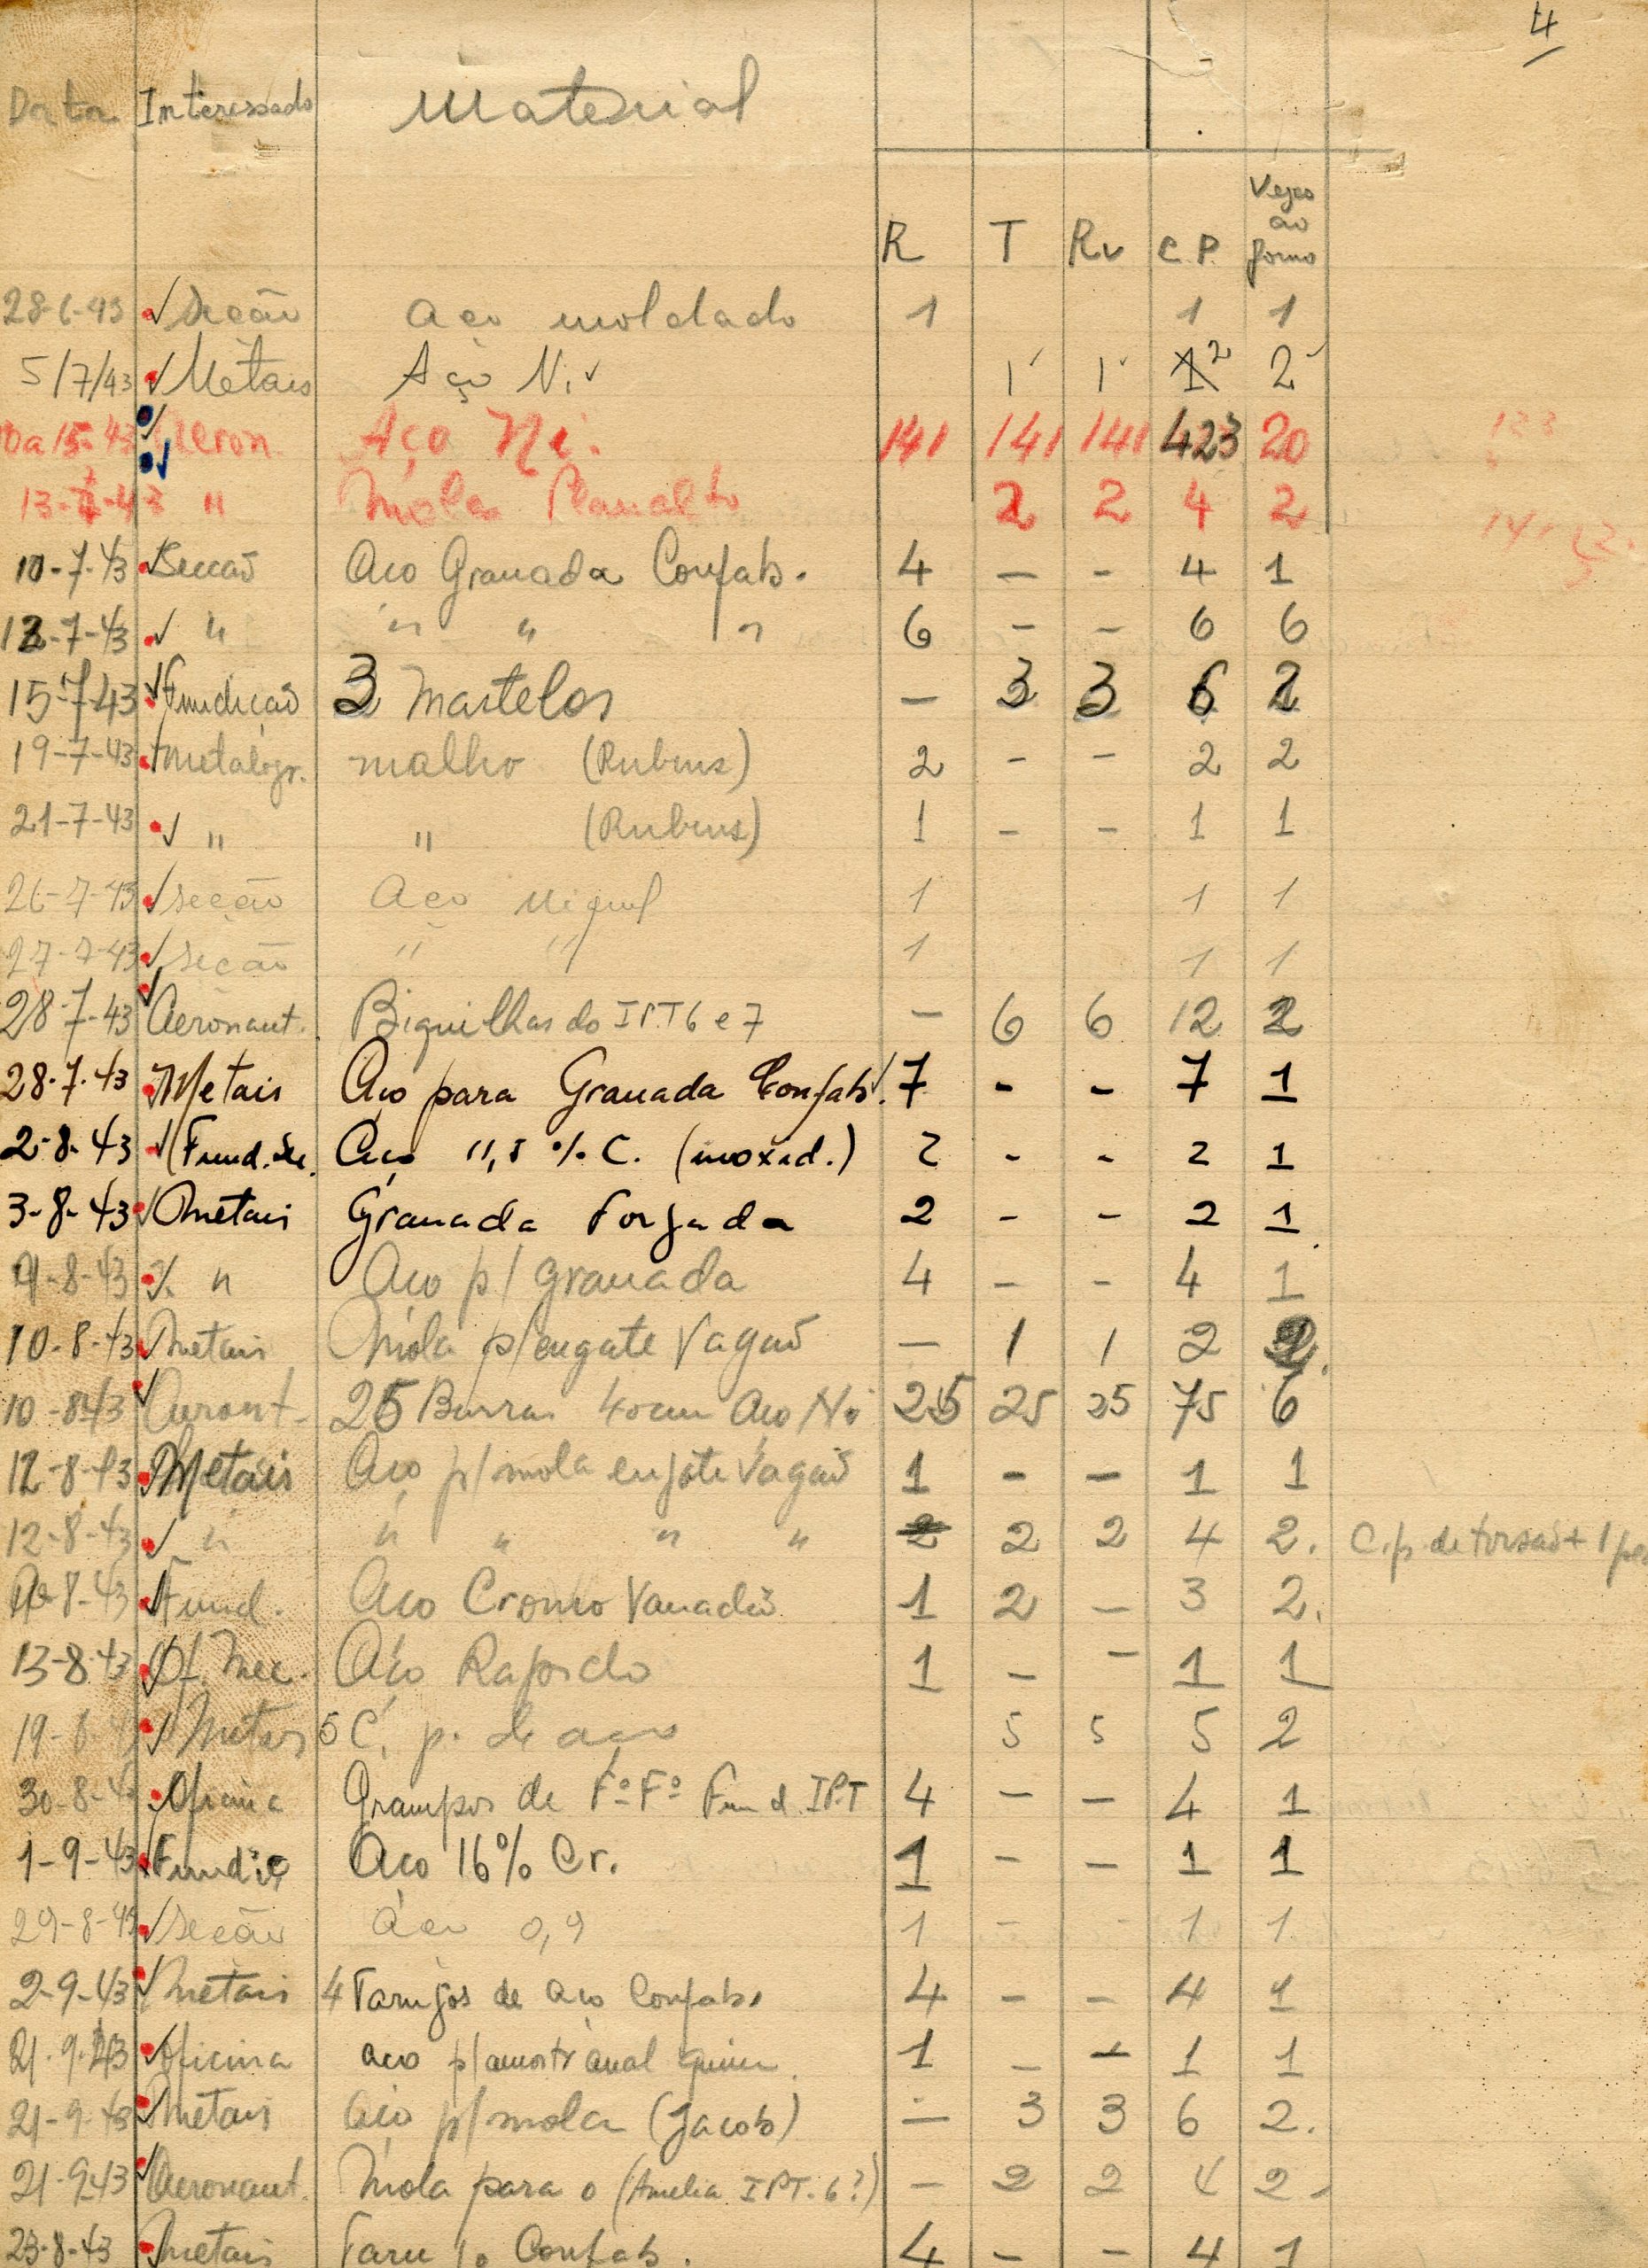 4
Data Interessado Material
R T Rv C.P. Vezes ao forno
28-6-43 Seção Aço moldado 1 1 1
5/7/43 Metais Aço Ni 1 1 1 2 2
10 a 15- -43 Aeron. Aço Ni. 141 141 141 423 20
13-7-43 " Molas Planalto 2 2 4 2
10-7-43 Secção Aço Granada Confab. 4 — - 4 1
12-7-43 " " " " 6 - - 6 6
15-7-43 Fundição 3 Martelos — 3 3 6 2
19-7-43 Metalogr. malho (Rubens) 2 - - 2 2
21-7-43 " " (Rubens) 1 - - 1 1
26-7-43 seção Aço Miguel 1 1 1
27-7-43 seção " " 1 1 1
28-7-43 Aeronaut. Biquilhas do IPT 6 e 7 — 6 6 12 2
28-7-43 Metais Aço para Granada Confab. 7 - - 7 1
2-8-43 Fund. Aço 11,5 % C. (inoxid.) 2 - - 2 1
3-8-43 Metais Granada Forjada 2 - - 2 1
9-8-43 " Aço p/ granada 4 - - 4 1
10-8-43 Metais Mola p/ engate Vagão — 1 1 2 2.
10-8-43 Aeront. 25 Barras 40cm Aço Ni 25 25 25 75 6
12-8-43 Metais Aço p/ mola engate Vagão 1 - - 1 1
12-8-43 " " " " " 2 2 2 4 2. C.p. de torsão + 1
-8-43 Fund. Aço Cromo Vanadio 1 2 — 3 2.
13-8-43 Of. Mec. Aço Rapido 1 - - 1 1
19-8- Metais 5 C. p. de aço 5 5 5 2
30-8-43 Oficina Grampos de Fº Fº Fund. IPT 4 - - 4 1
1-9-43 Fundiç Aço 16% Cr. 1 - - 1 1
29-8-43 Seção Aço 0,9 1 - - 1 1
2-9-43 Metais 4 Tarugos de aço Confab. 4 - - 4 1
21-9-43 Oficina aço p/ amostr anal quim. 1 - - 1 1
21-9-43 Metais Aço p/ mola (Jacob) — 3 3 6 2.
21-9-43 Aeronaut. Mola para o (Amelia IPT. 6?) — 2 2 4 2
23-8-43 Metais Confab. 4 - - 4 1